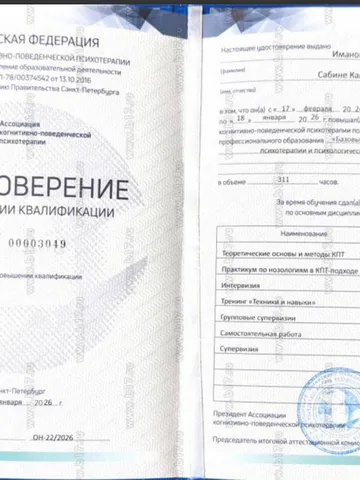 СКАЯ ФЕДЕРАЦИЯ
ИВНО-ПОВЕДЕНЧЕСКОЙ ПСИХОТЕРАПИИ
вление образовательной деятельности
Л-78/00374542 от 13.10.2016
ию Правительства Санкт-Петербурга
Ассоциация
когнитивно-поведенческой
психотерапии
ТОВЕРЕНИЕ
ИИ КВАЛИФИКАЦИИ
00003049
повышении квалификации
нкт-Петербург
января 2026 г.
ОН-22/2026
Настоящее удостоверение выдано
Иманов
(фамилия)
Сабине Ка
(имя, отчество)
в том, что он(а) с « 17 » февраля 20
по « 18 » января 20 26 г. повышал(
когнитивно-поведенческой психотерапии по
профессионального образования «Базовы
психотерапии и психологическ
в объеме 311 часов.
За время обучения сдал(а
по основным дисципли
Наименование
Теоретические основы и методы КПТ
Практикум по нозологиям в КПТ-подходе
Интервизия
Тренинг «Техники и навыки»
Групповые супервизии
Самостоятельная работа
Супервизия
Президент Ассоциации
когнитивно-поведенческой психотерапии
Председатель итоговой аттестационной коми